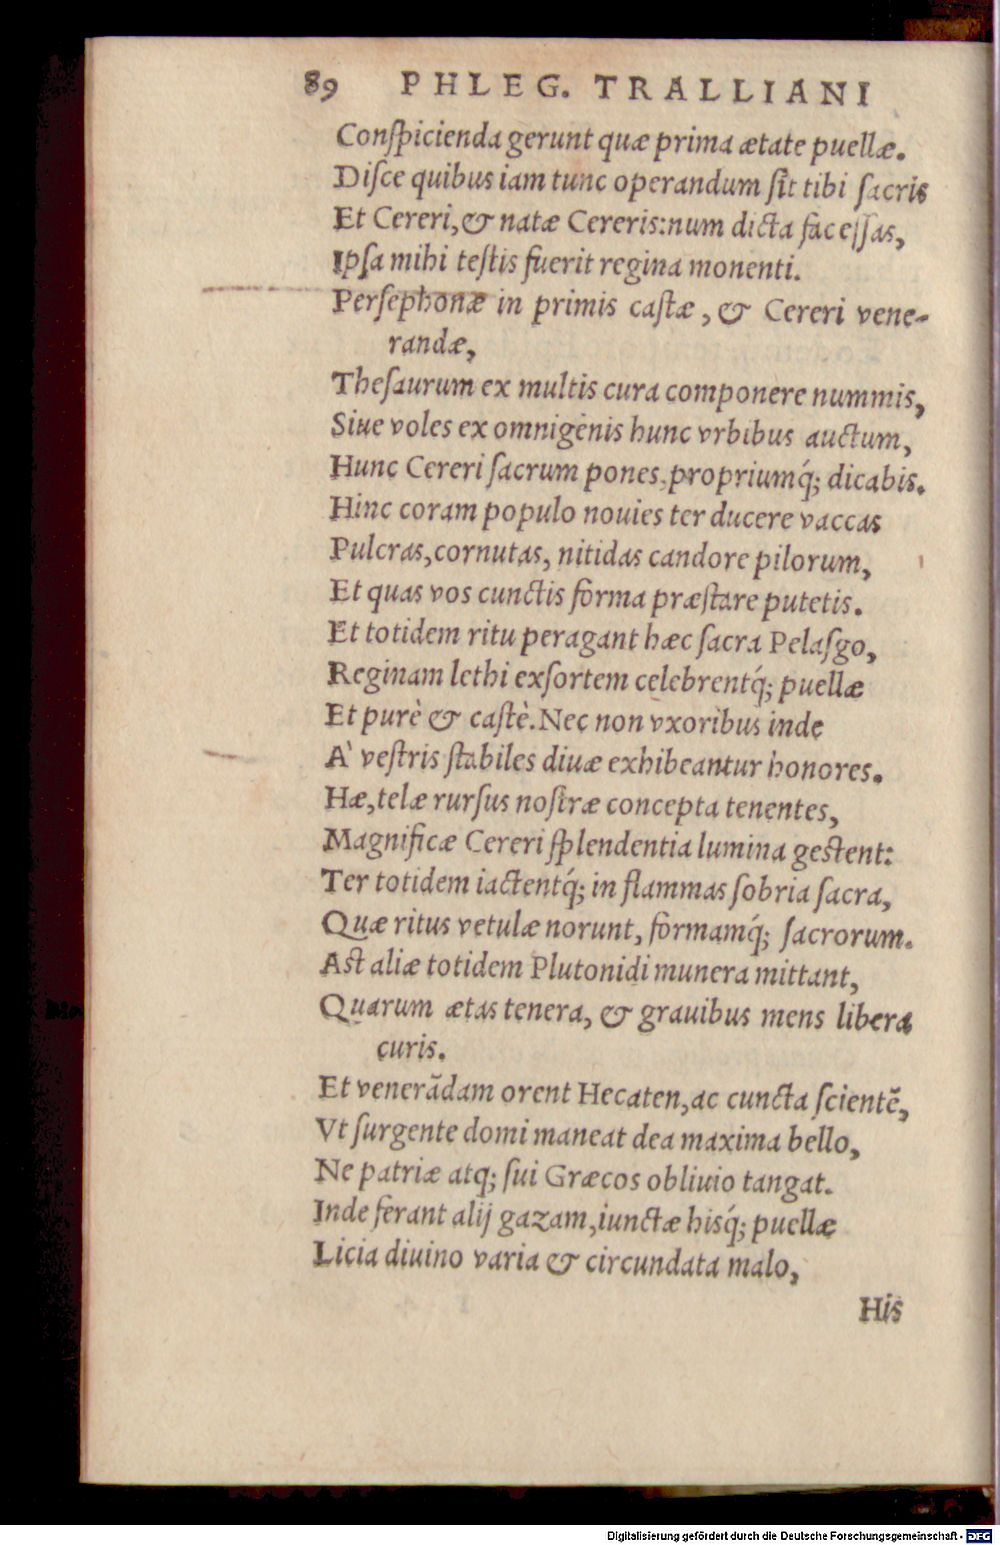 89 PHLEG. TRALLIANI
Conſpicienda gerunt quæ prima ætate puellæ.
Diſce quibus iam tunc operandum ſit tibi ſacris
Et Cereri, & natæ Cereris: num dicta faceſſas,
Ipſa mihi teſtis fuerit regina monenti.
Perſephonæ in primis caſtæ, & Cereri vene-
randæ,
Theſaurum ex multis cura componere nummis,
Siue voles ex omnigenis hunc vrbibus auctum,
Hunc Cereri ſacrum pones, propriumq́; dicabis.
Hinc coram populo nouies ter ducere vaccas
Pulcras, cornutas, nitidas candore pilorum,
Et quas vos cunctis forma præſtare putetis.
Et totidem ritu peragant hæc ſacra Pelaſgo,
Reginam lethi exſortem celebrentq́; puellæ
Et purè & caſtè. Nec non vxoribus inde
A' veſtris ſtabiles diuæ exhibeantur honores.
Hæ, telæ rurſus noſtræ concepta tenentes,
Magnificæ Cereri ſplendentia lumina geſtent:
Ter totidem iactentq́; in flammas ſobria ſacra,
Quæ ritus vetulæ norunt, formamq́; ſacrorum.
Aſt aliæ totidem Plutonidi munera mittant,
Quarum ætas tenera, & grauibus mens libera
curis.
Et venerãdam orent Hecaten, ac cuncta ſcientẽ,
Vt ſurgente domi maneat dea maxima bello,
Ne patriæ atq; ſui Græcos obliuio tangat.
Inde ferant alij gazam, iunctæ hisq́; puellæ
Licia diuino varia & circundata malo,
His
Digitalisierung gefördert durch die Deutsche Forschungsgemeinschaft - DFG